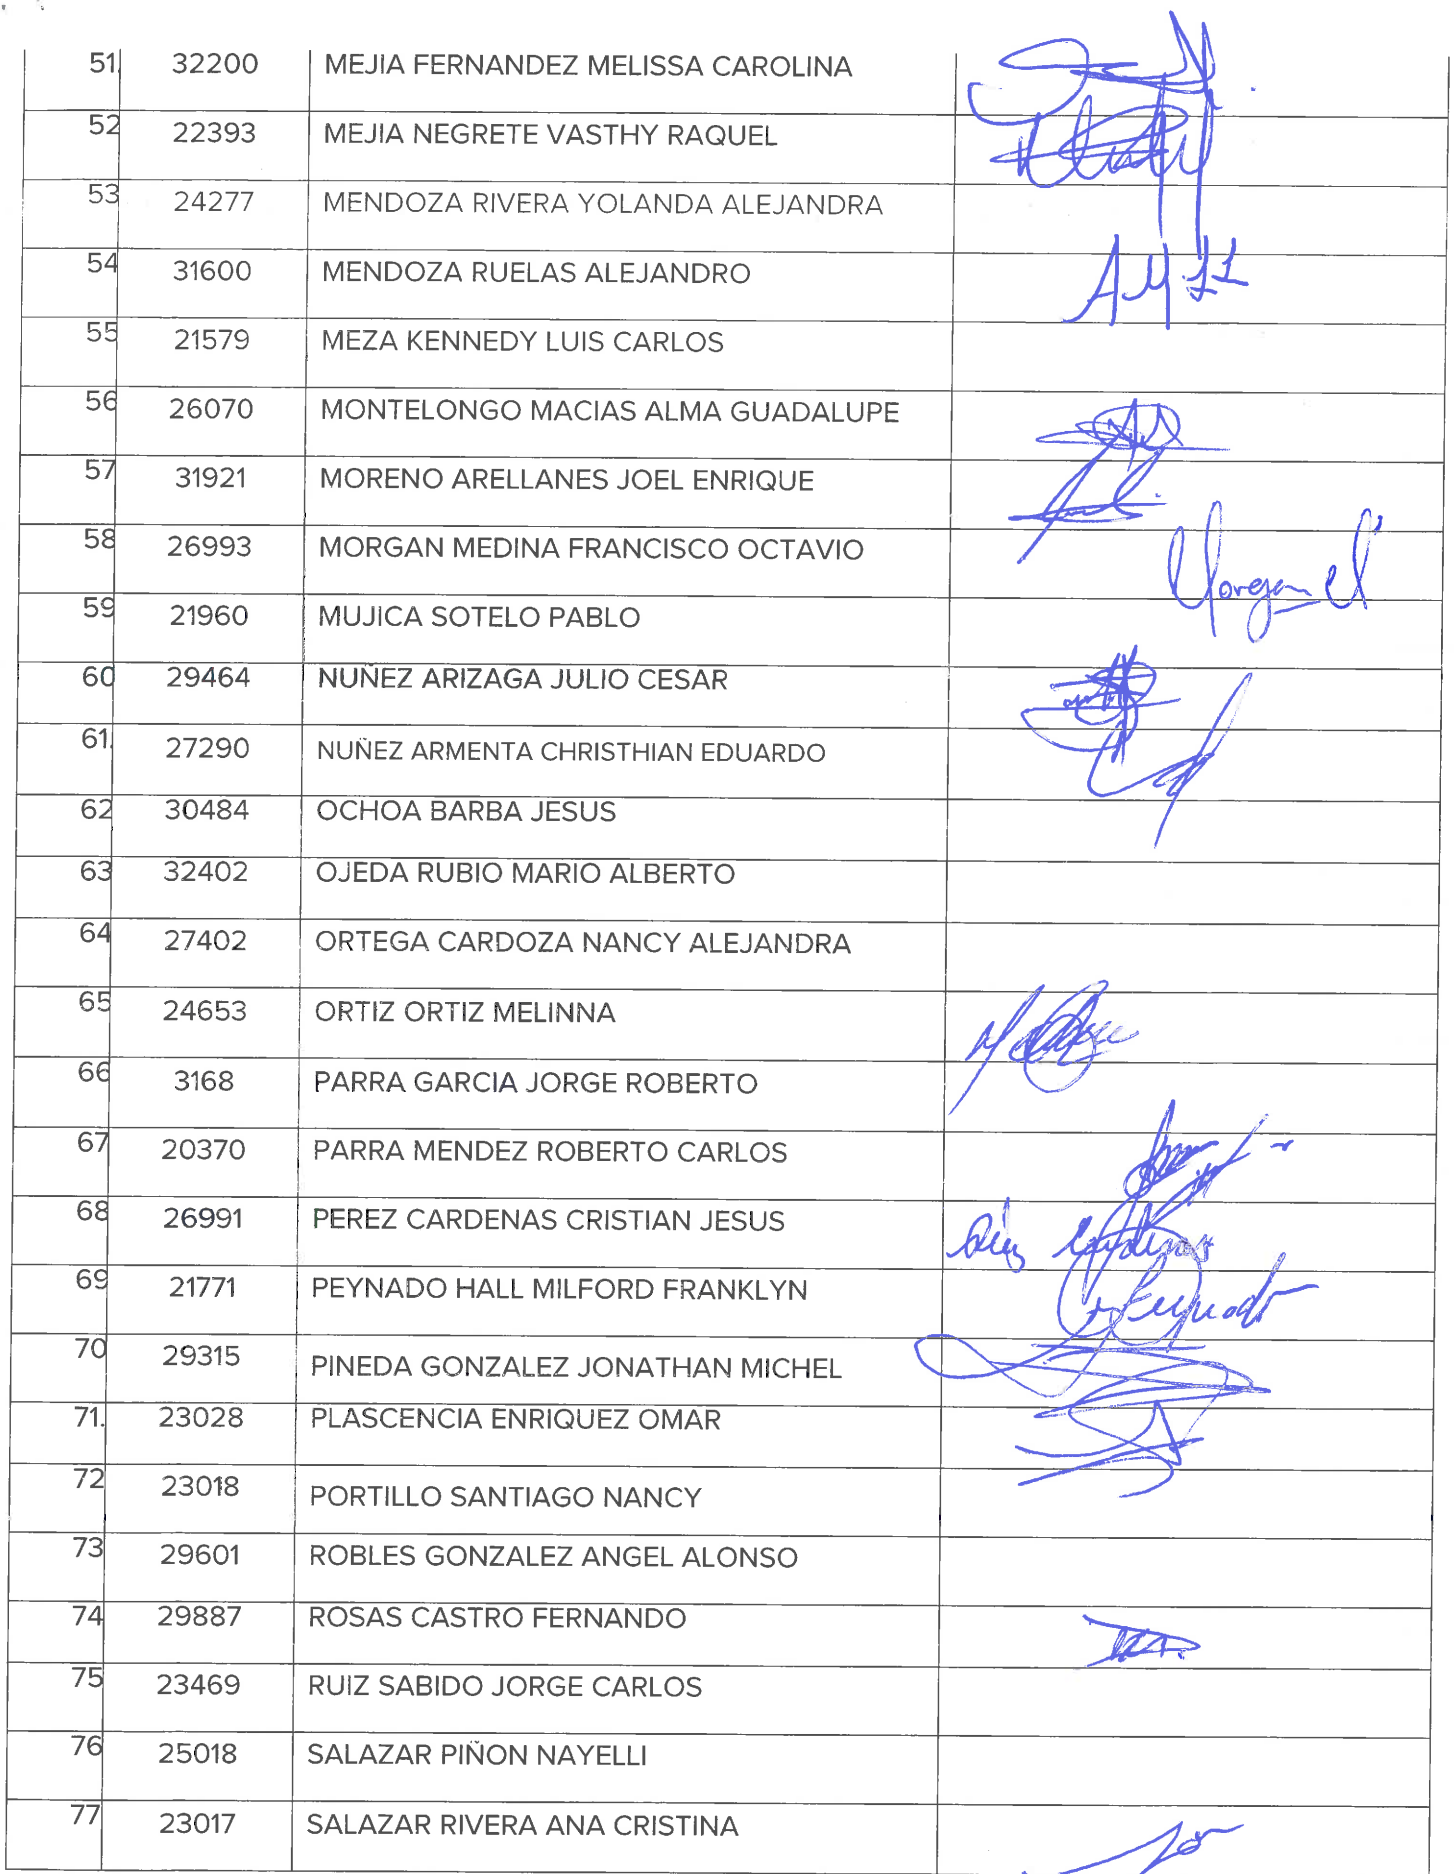 51. 32200 MEJIA FERNANDEZ MELISSA CAROLINA
52 22393 MEJIA NEGRETE VASTHY RAQUEL
53 24277 MENDOZA RIVERA YOLANDA ALEJANDRA
54 31600 MENDOZA RUELAS ALEJANDRO
55 21579 MEZA KENNEDY LUIS CARLOS
56 26070 MONTELONGO MACIAS ALMA GUADALUPE
57 31921 MORENO ARELLANES JOEL ENRIQUE
58 26993 MORGAN MEDINA FRANCISCO OCTAVIO Morgan
59 21960 MUJICA SOTELO PABLO
60 29464 NUÑEZ ARIZAGA JULIO CESAR
61. 27290 NUÑEZ ARMENTA CHRISTHIAN EDUARDO
62 30484 OCHOA BARBA JESUS
63 32402 OJEDA RUBIO MARIO ALBERTO
64 27402 ORTEGA CARDOZA NANCY ALEJANDRA
65 24653 ORTIZ ORTIZ MELINNA
66 3168 PARRA GARCIA JORGE ROBERTO
67 20370 PARRA MENDEZ ROBERTO CARLOS
68 26991 PEREZ CARDENAS CRISTIAN JESUS
69 21771 PEYNADO HALL MILFORD FRANKLYN
70 29315 PINEDA GONZALEZ JONATHAN MICHEL
71. 23028 PLASCENCIA ENRIQUEZ OMAR
72 23018 PORTILLO SANTIAGO NANCY
73 29601 ROBLES GONZALEZ ANGEL ALONSO
74 29887 ROSAS CASTRO FERNANDO
75 23469 RUIZ SABIDO JORGE CARLOS
76 25018 SALAZAR PIÑON NAYELLI
77 23017 SALAZAR RIVERA ANA CRISTINA